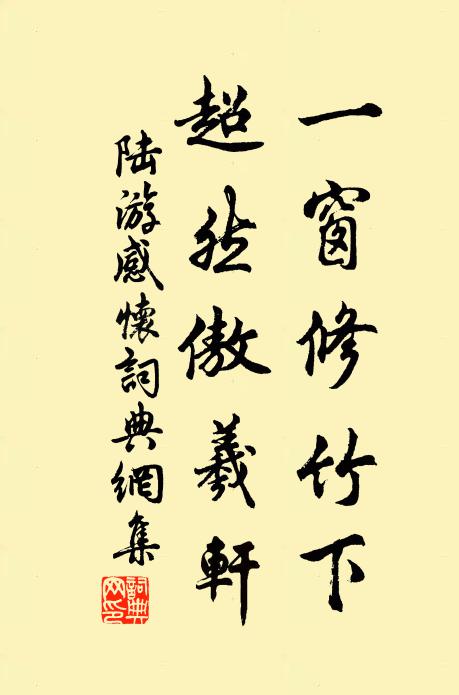 一窗修竹下
超然傲羲軒
陆游感懷詞典網集
詞典网印